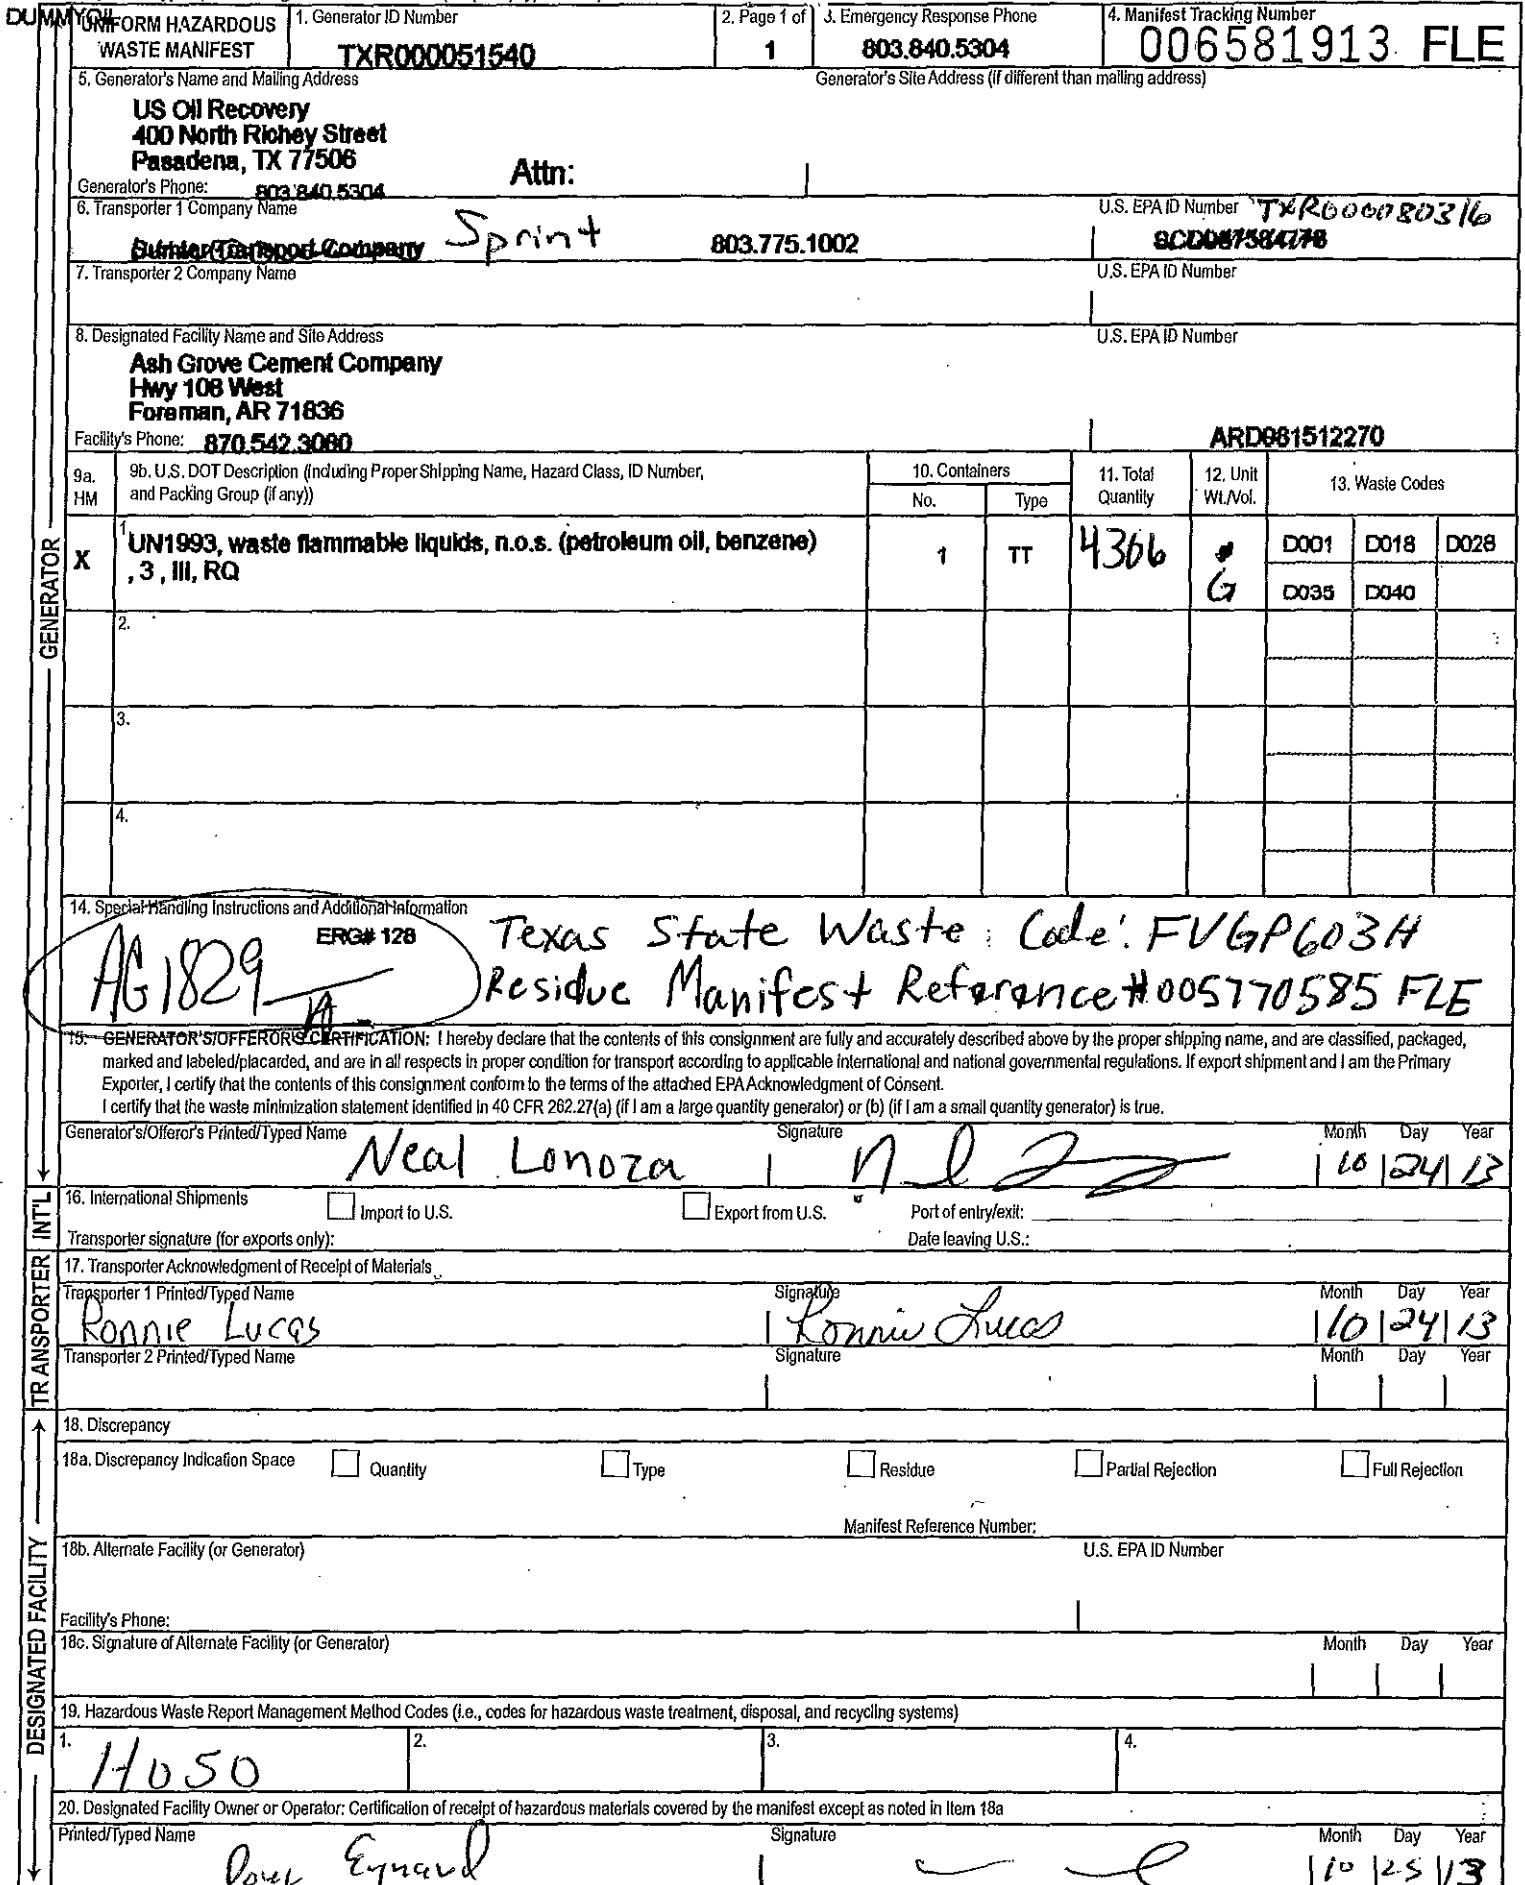 UNIFORM HAZARDOUS WASTE MANIFEST
1. Generator ID Number
TXR000051540
2. Page 1 of
1
3. Emergency Response Phone
803.840.5304
4. Manifest Tracking Number
006581913 FLE
5. Generator's Name and Mailing Address
Generator's Site Address (if different than mailing address)
US Oil Recovery
400 North Richey Street
Pasadena, TX 77506
Attn:
Generator's Phone: 803.840.5304
6. Transporter 1 Company Name
U.S. EPA ID Number
Sumter Transport Company Sprint 803.775.1002
7. Transporter 2 Company Name
U.S. EPA ID Number
8. Designated Facility Name and Site Address
U.S. EPA ID Number
Ash Grove Cement Company
Hwy 108 West
Foreman, AR 71836
Facility's Phone: 870.542.3080
ARD981512270
9a. HM
9b. U.S. DOT Description (including Proper Shipping Name, Hazard Class, ID Number, and Packing Group (if any))
10. Containers
No. Type
11. Total Quantity
12. Unit Wt./Vol.
13. Waste Codes
X
1.
UN1993, waste flammable liquids, n.o.s. (petroleum oil, benzene)
, 3 , III, RQ
1 TT 4366 G
D001 D018 D028
D035 D040
2.
3.
4.
14. Special Handling Instructions and Additional Information
ERG# 128
AG1829
Texas State Waste Code: FVGP603H
Residue Manifest Reference #005770585 FLE
15. GENERATOR'S/OFFEROR'S CERTIFICATION: I hereby declare that the contents of this consignment are fully and accurately described above by the proper shipping name, and are classified, packaged,
marked and labeled/placarded, and are in all respects in proper condition for transport according to applicable international and national governmental regulations. If export shipment and I am the Primary
Exporter, I certify that the contents of this consignment conform to the terms of the attached EPA Acknowledgment of Consent.
I certify that the waste minimization statement identified in 40 CFR 262.27(a) (if I am a large quantity generator) or (b) (if I am a small quantity generator) is true.
Generator's/Offeror's Printed/Typed Name
Signature
Month Day Year
Neal Lonoza
10 24 13
16. International Shipments
Import to U.S.
Export from U.S.
Port of entry/exit:
Transporter signature (for exports only):
Date leaving U.S.:
17. Transporter Acknowledgment of Receipt of Materials
Transporter 1 Printed/Typed Name
Signature
Month Day Year
Ronnie Lucas
Ronnie Lucas
10 24 13
Transporter 2 Printed/Typed Name
Signature
Month Day Year
18. Discrepancy
18a. Discrepancy Indication Space
Quantity
Type
Residue
Partial Rejection
Full Rejection
Manifest Reference Number:
18b. Alternate Facility (or Generator)
U.S. EPA ID Number
Facility's Phone:
18c. Signature of Alternate Facility (or Generator)
Month Day Year
19. Hazardous Waste Report Management Method Codes (i.e., codes for hazardous waste treatment, disposal, and recycling systems)
1. H050
2.
3.
4.
20. Designated Facility Owner or Operator: Certification of receipt of hazardous materials covered by the manifest except as noted in Item 18a
Printed/Typed Name
Signature
Month Day Year
10 25 13
GENERATOR
INT'L
TRANSPORTER
DESIGNATED FACILITY